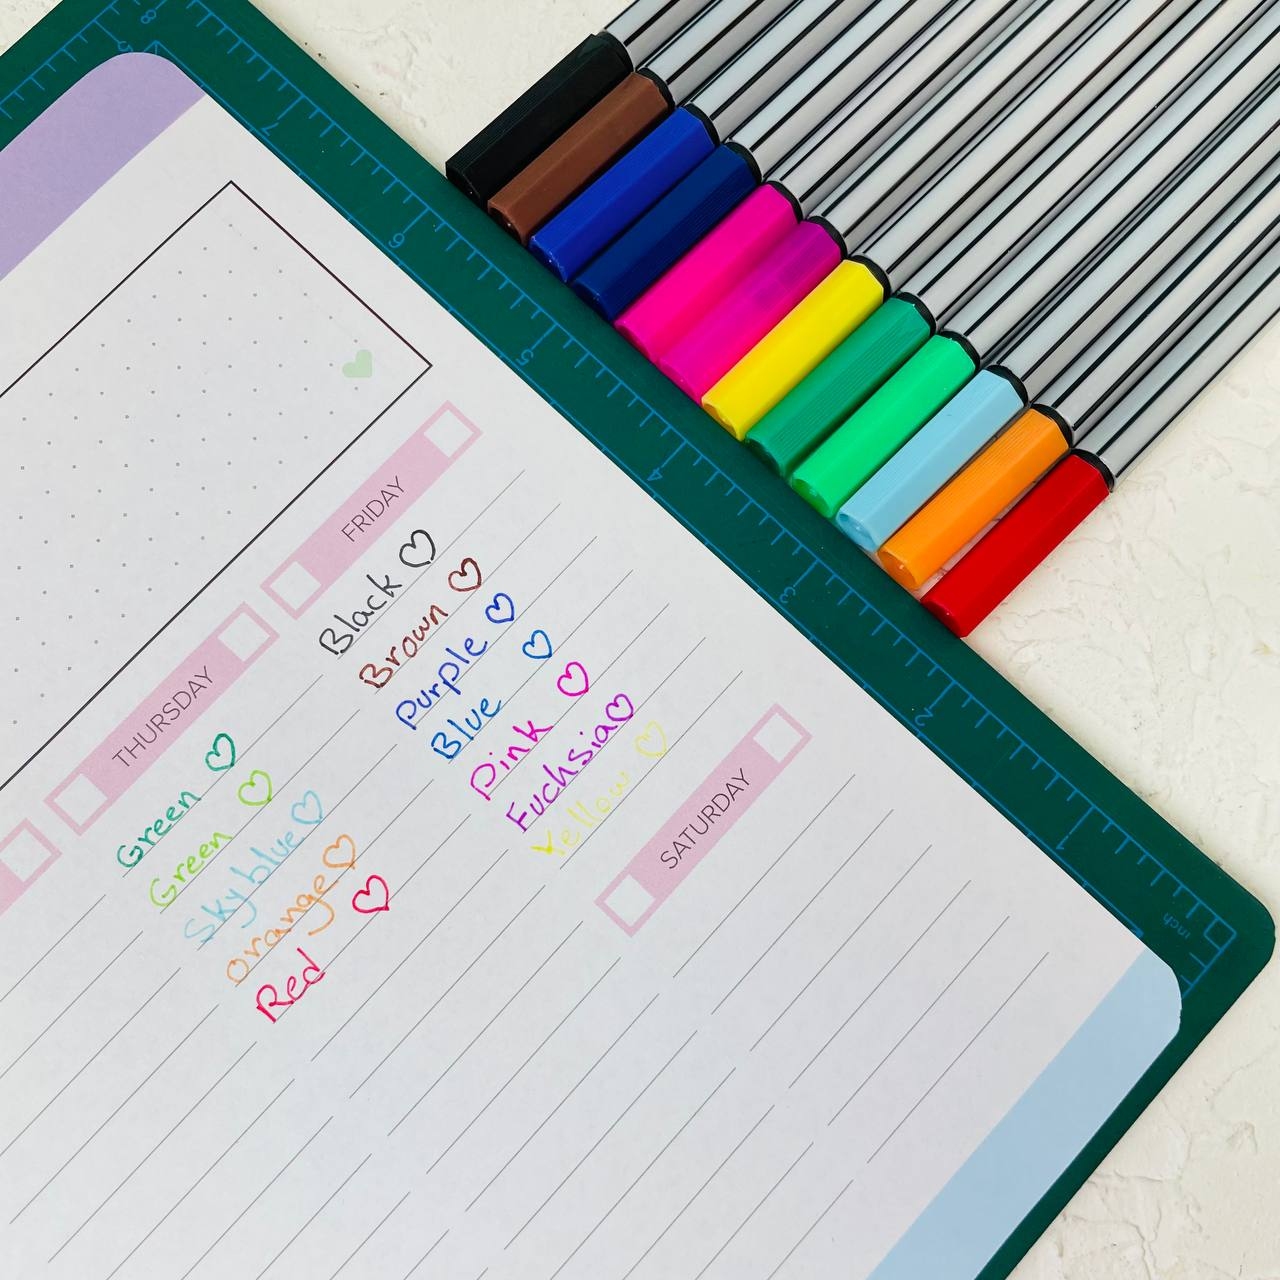 THURSDAY
Green
Green
Sky blue
Orange
Red
FRIDAY
Black
Brown
Purple
Blue
Pink
Fuchsia
Yellow
SATURDAY
8
7
6
5
4
3
2
1
inch